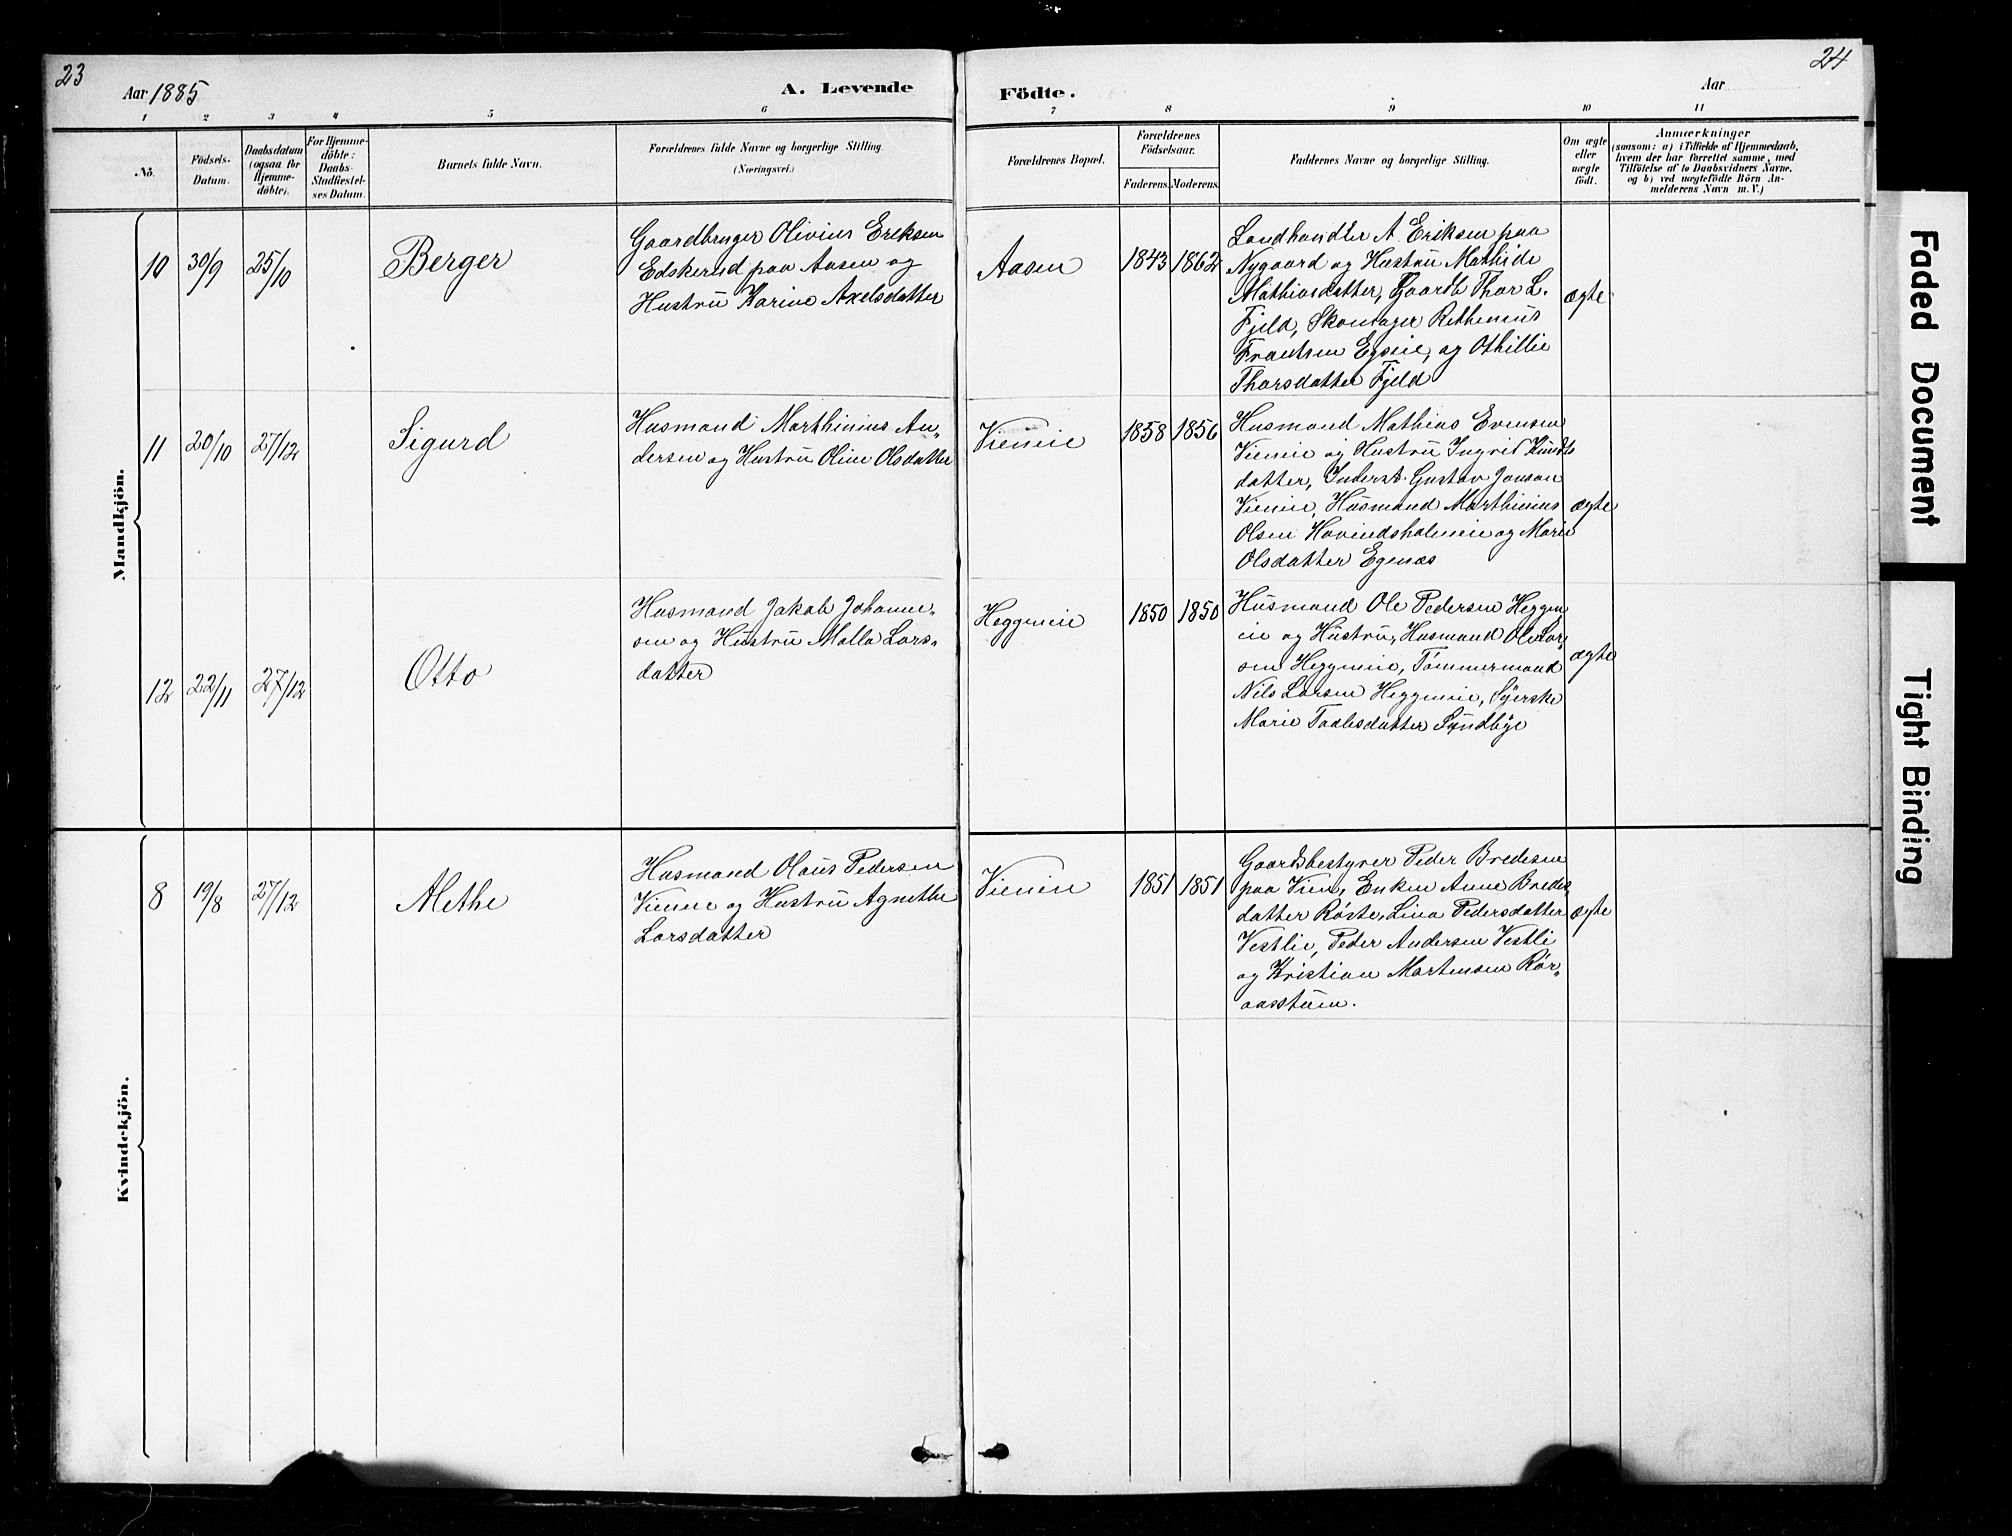 23
24
Aar 1885
A. Levende
Födte.
Aar
1 2 3 4 5 6 7 8 9 10 11
No.
Födsels-
Datum.
Daabsdatum
(ogsaa for
Hjemme-
döbte).
For Hjemme-
döbte:
Daabs-
Stadfæstel-
ses Datum.
Barnets fulde Navn.
Forældrenes fulde Navne og borgerlige Stilling
(Næringsvei.)
Forældrenes Bopæl.
Forældrenes
Födselsaar.
Faderens. Moderens.
Faddernes Navne og borgerlige Stilling.
Om ægte
eller
uægte
födt.
Anmærkninger
(saasom: a) i Tilfælde af Hjemmedaab,
hvem der har forrettet samme, med
Tilföielse af to Daabsvidners Navne.
og b) ved uægtefödte Börn An-
melderens Navn m. V.)
Mandkjön.
10 30/9 25/10 Berger
Gaardbruger Olivius Eriksen
Edskerud paa Aasen og
Hustru Karine Axelsdatter
Aasen 1843 1862
Landhandler A. Eriksen paa
Nygaard og Hustru Mathide
Mathiasdatter, Gaardb Thor L.
Fjeld, Skomager
Frantsen og Othillie
Thorsdatter Fjeld
ægte
11 20/10 27/12 Sigurd
Husmand Marthinius An-
dersen og Hustru Oline Olsdatter
Vieneie 1858 1856
Husmand Mathias Evensen
Vieneie og Hustru Ingrid Knuds
datter, Inderst Gustav Jonson
Vieneie, Husmand Marthinius
Olsen Hovindsholmeie og Marie
Olsdatter Egenæs
ægte
12 22/11 27/12 Otto
Husmand Jakob Johanne-
sen og Hustru Malla Lars-
datter
Heggneie 1850 1850
Husmand Ole Pedersen Heggn
eie og Hustru, Husmand Ole Lar-
sen Heggneie, Tømmermand
Nils Larsen Heggneie, Syerske
Marie Taalesdatter Sundbye
ægte
Kvindekjön.
8 19/8 27/12 Alethe
Husmand Olaus Pedersen
Vieneie og Hustru Agnethe
Larsdatter
Vieneie 1851 1851
Gaardsbestyrer Peder Bredesen
paa Vien, Enken Anne Bredes
datter Røste, Lina Pedersdatter
Vestlie, Peder Andersen Vestli
og Kristian Martensen Rør-
aasstuen.
ægte
Faded Document
Tight Binding